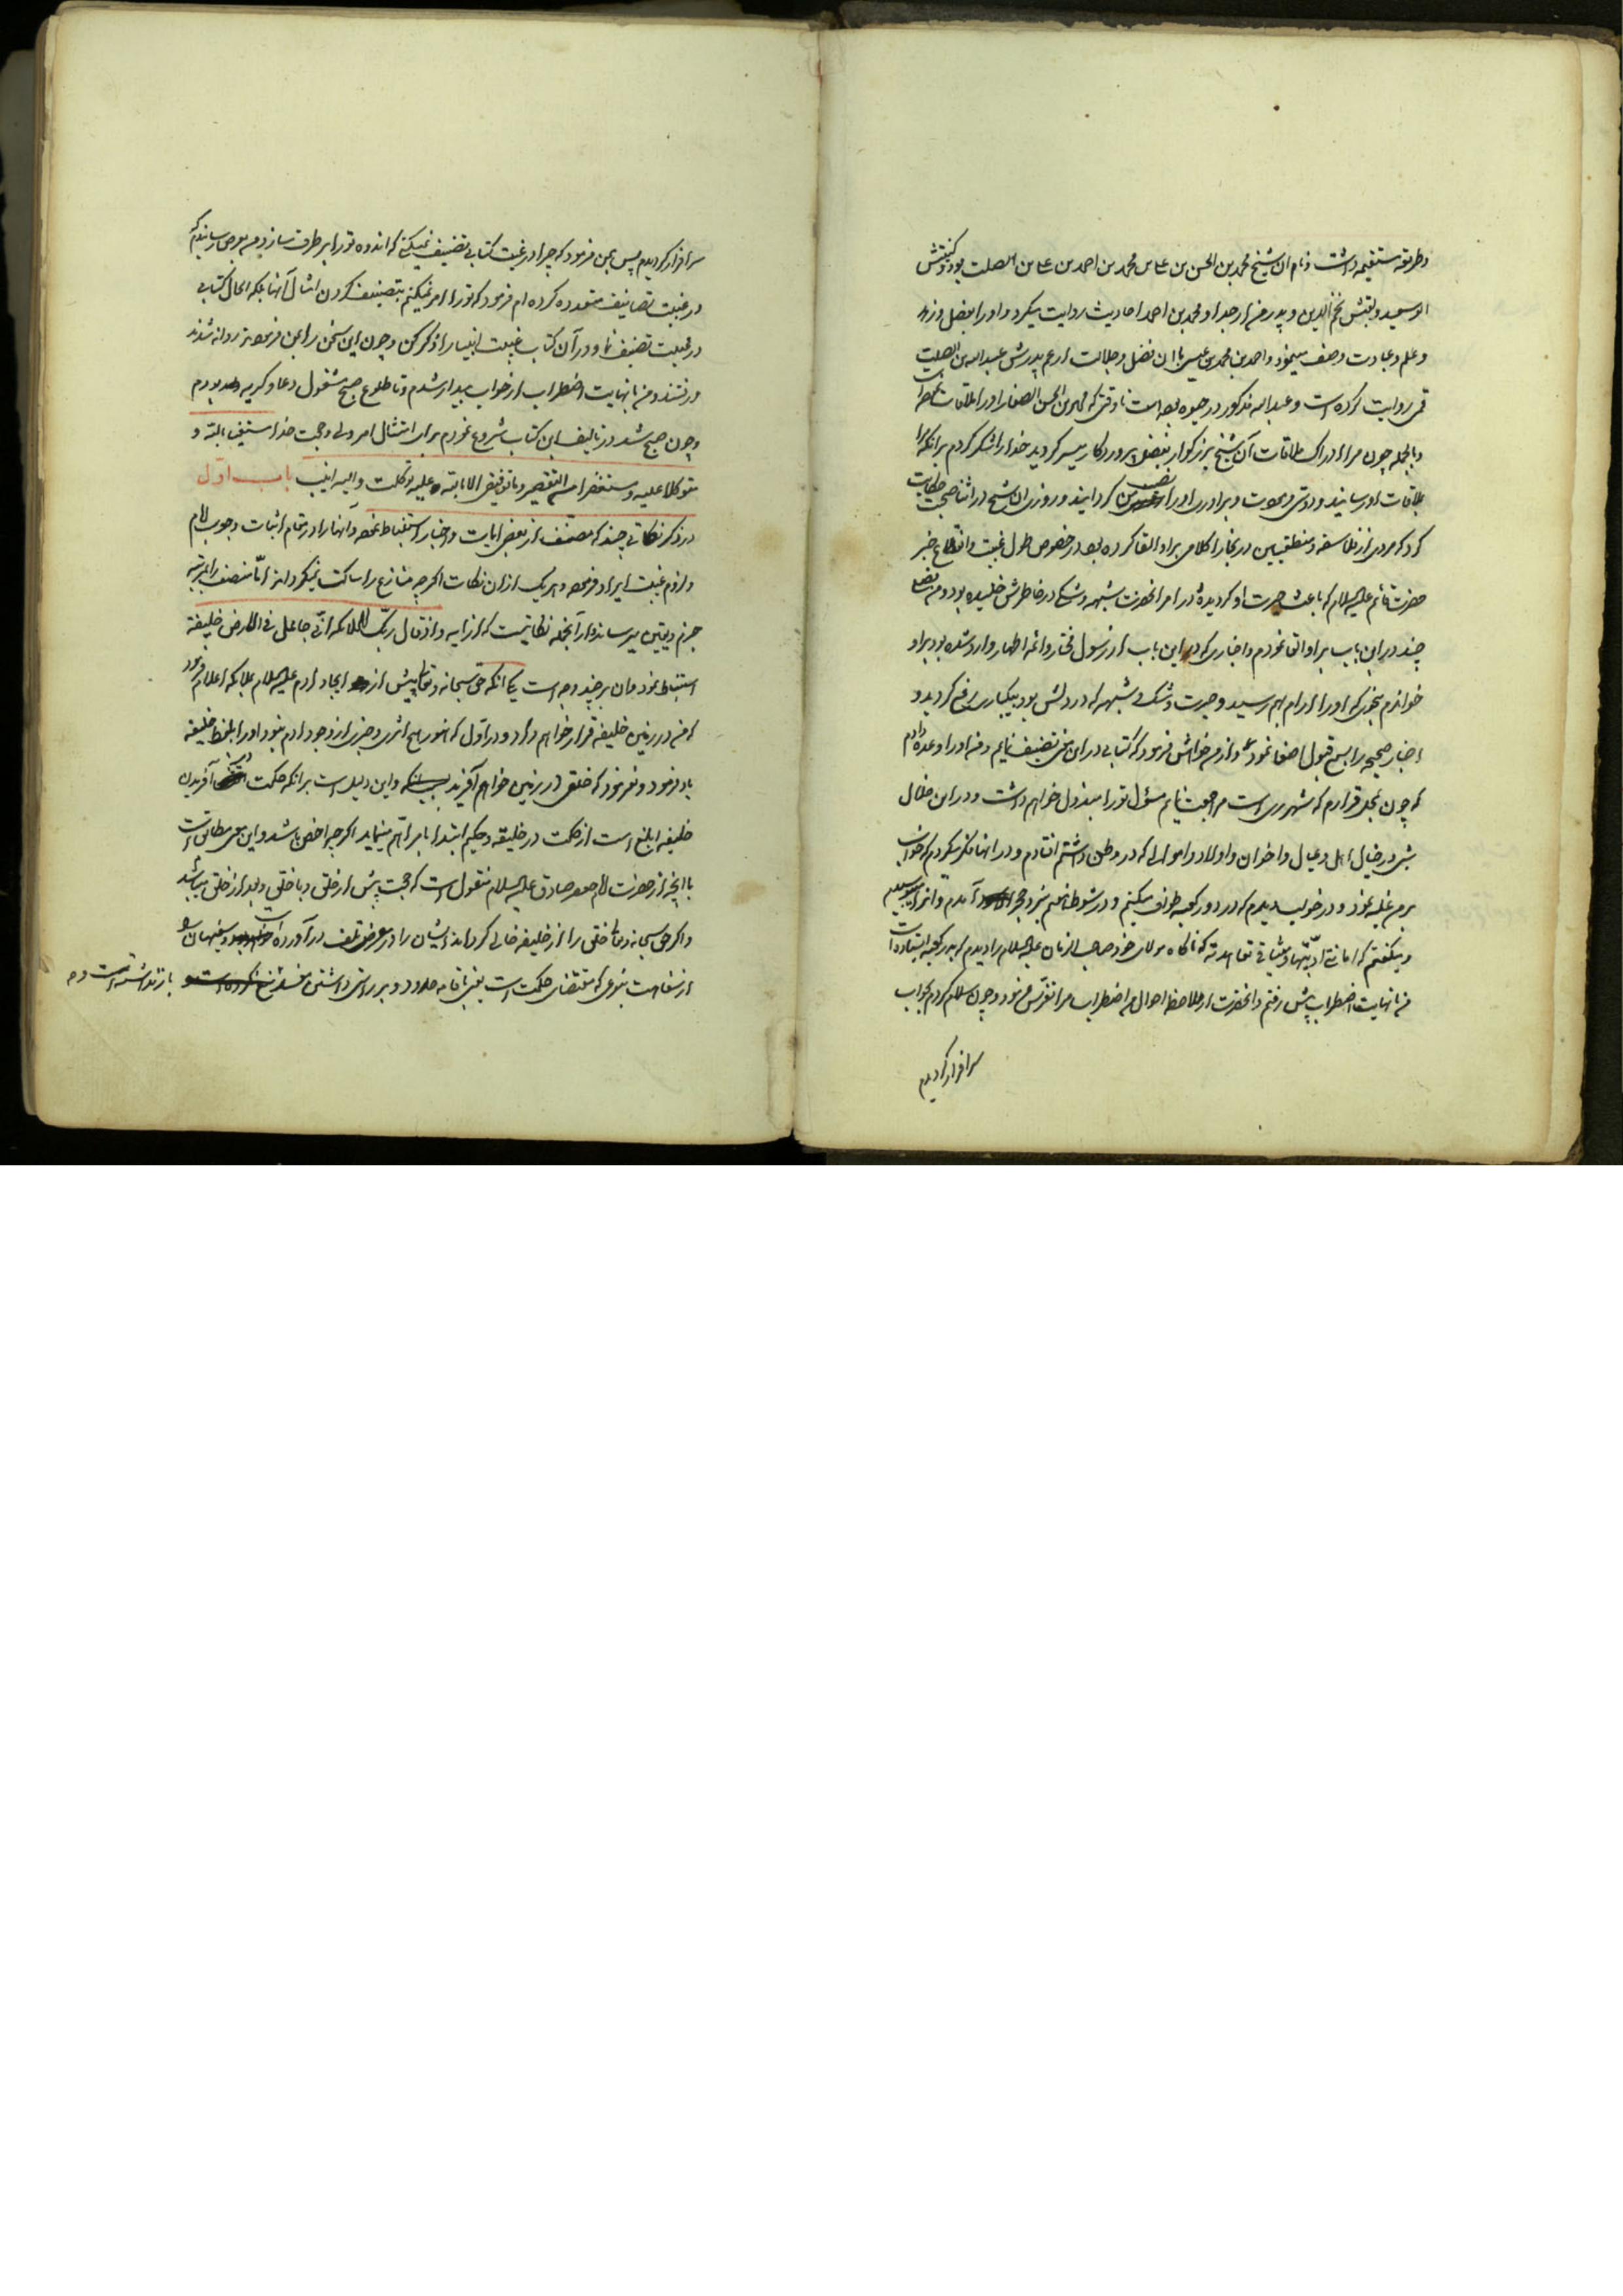 وطریقه مستقیمه داشت و نام ان شیخ محمد بن الحسن بن علی بن محمد بن احمد بن علی بن الصلت بود و کنیتش
ابو سعید و لقبش نجم الدین و پدر من از جد او محمد بن احمد احادیث روایت میکرد و او را بفضل و زهد
و علم و عبادت وصف مینمود و احمد بن محمد بن عیسی با ان فضل و جلالت از عم پدرش عبد الله بن الصلت
قمی روایت کرده است و عبد الله مذکور در حیوه بوده است تا وقتی که محمد بن الحسن الصفار او را ملاقات نموده
و بالجمله چون مرا ادراک ملاقات آن شیخ بزرکوار بفضل پروردکار میسر کردید خدا را شکر کردم برانکه مرا
بملاقات او رسانید و دوستی و محبت و برادری او را نصیب من کردانید و روزی ان شیخ در اثنا صحبت حکایت
کرد که مردی از فلاسفه و منطقیین در بخارا کلامی بر او القا کرده بود در خصوص طول غیبت و انقطاع خبر
حضرت قائم علیه السلام که باعث حیرت او کردیده و در امر انحضرت شبهه و شکی در خاطرش خلیده بود و من فصلی
چند در این باب بر او القا نمودم و اخباری که در این باب از رسول مختار و ائمه اطهار وارد شده بود بر او
خواندم بنحوی که او را ارام بهم رسید و حیرت و شک و شبهه که در دلش بود بیکبارکی رفع کردید و
اخبار صحیحه را بسمع قبول اصغا نمود و از من خواهش فرمود که کتابی در این فن تصنیف نمایم و من او را وعده دادم
که چون بمحل قرارم که شهر ری است مراجعت نمایم مسؤل تو را مبذول خواهم داشت و در این خلال
شبی در خیال اهل و عیال و اخوان و اولاد و اموال که در وطن داشتم افتادم و در انها فکر میکردم که خواب
بر من غلبه نمود و در خواب دیدم که در دور کعبه طواف میکنم و در شوط هفتم بنزد حجر اسود آمدم و انرا میبوسیدم
و میکفتم که امانتی ادیتها و میثاقی تعاهدته که ناکاه مولای خود صاحب الزمان علیه السلام را دیدم که بدر کعبه ایستاده است
من با نهایت اضطراب پیش رفتم و انحضرت از ملاحظه احوال من اضطراب مرا تفرس فرمود و چون سلام کردم بجواب
سرافراز کردیدم
سرافراز کردیدم پس بمن فرمود که چرا در غیبت کتابی تصنیف نمیکنی که اندوه تو را بر طرف سازد من بعرض رسانیدم که
در غیبت تصانیف متعدده کرده ام فرمود که تو را امر نمیکنم بتصنیف کردن امثال آنها بلکه الحال کتابی
در غیبت تصنیف نما و در آن کتاب غیبت انبیا را ذکر کن و چون این سخن را بمن فرمودند روانه شدند
و رفتند و من با نهایت اضطراب از خواب بیدار شدم و تا طلوع صبح مشغول دعا و کریه بودم
و چون صبح شد در تالیف این کتاب شروع نمودم برای امتثال امر ولی و حجت خدا مستعینا بالله و
متوکلا علیه و مستغفرا من التقصیر و ما توفیقی الا بالله علیه توکلت و الیه انیب باب اول
در ذکر نکاتی چند که مصنف از بعض ایات و اخبار استنباط نموده و آنها را در مقام اثبات وجوب امام
و لزوم غیبت ایراد فرموده و هر یک از ان نکات اکر چه منازع را ساکت نمیکرداند امّا منصف را بمرتبه
جزم و یقین میرساند از آنجمله نکاتیست که از ایه و اذ قال ربّک للملائکه انّی جاعل فی الارض خلیفة
استنباط نموده و ان بر چند وجه است یکی انکه حق سبحانه و تعالی پیش از ایجاد ادم علیه السلام ملائکه را اعلام فرمود
که من در زمین خلیفه قرار خواهم داد و در اول که هنوز هیچ اثری و خبری از وجود ادم نبود او را بلفظ خلیفه
یاد فرمود و نفرمود که خلقی در زمین خواهم آفرید و این دلیل است برانکه حکمت در آفریدن
خلیفه ابلغ است از حکمت در خلیقه و حکیم ابتدا بامر اهم مینماید اکر چه اخص باشد و این معنی مطابق است
با انچه از حضرت امام جعفر صادق علیه السلام منقول است که حجت پیش از خلق و با خلق و بعد از خلق میباشد
و اکر حق سبحانه و تعالی خلق را از خلیفه خالی کرداند ایشان را در معرض تلف در آورده است و سفیهان را
از سفاهت بنوعی که مقتضای حکمت است یعنی باقامه حدود و بر راستی داشتن مفسد باز نداشته است و چه